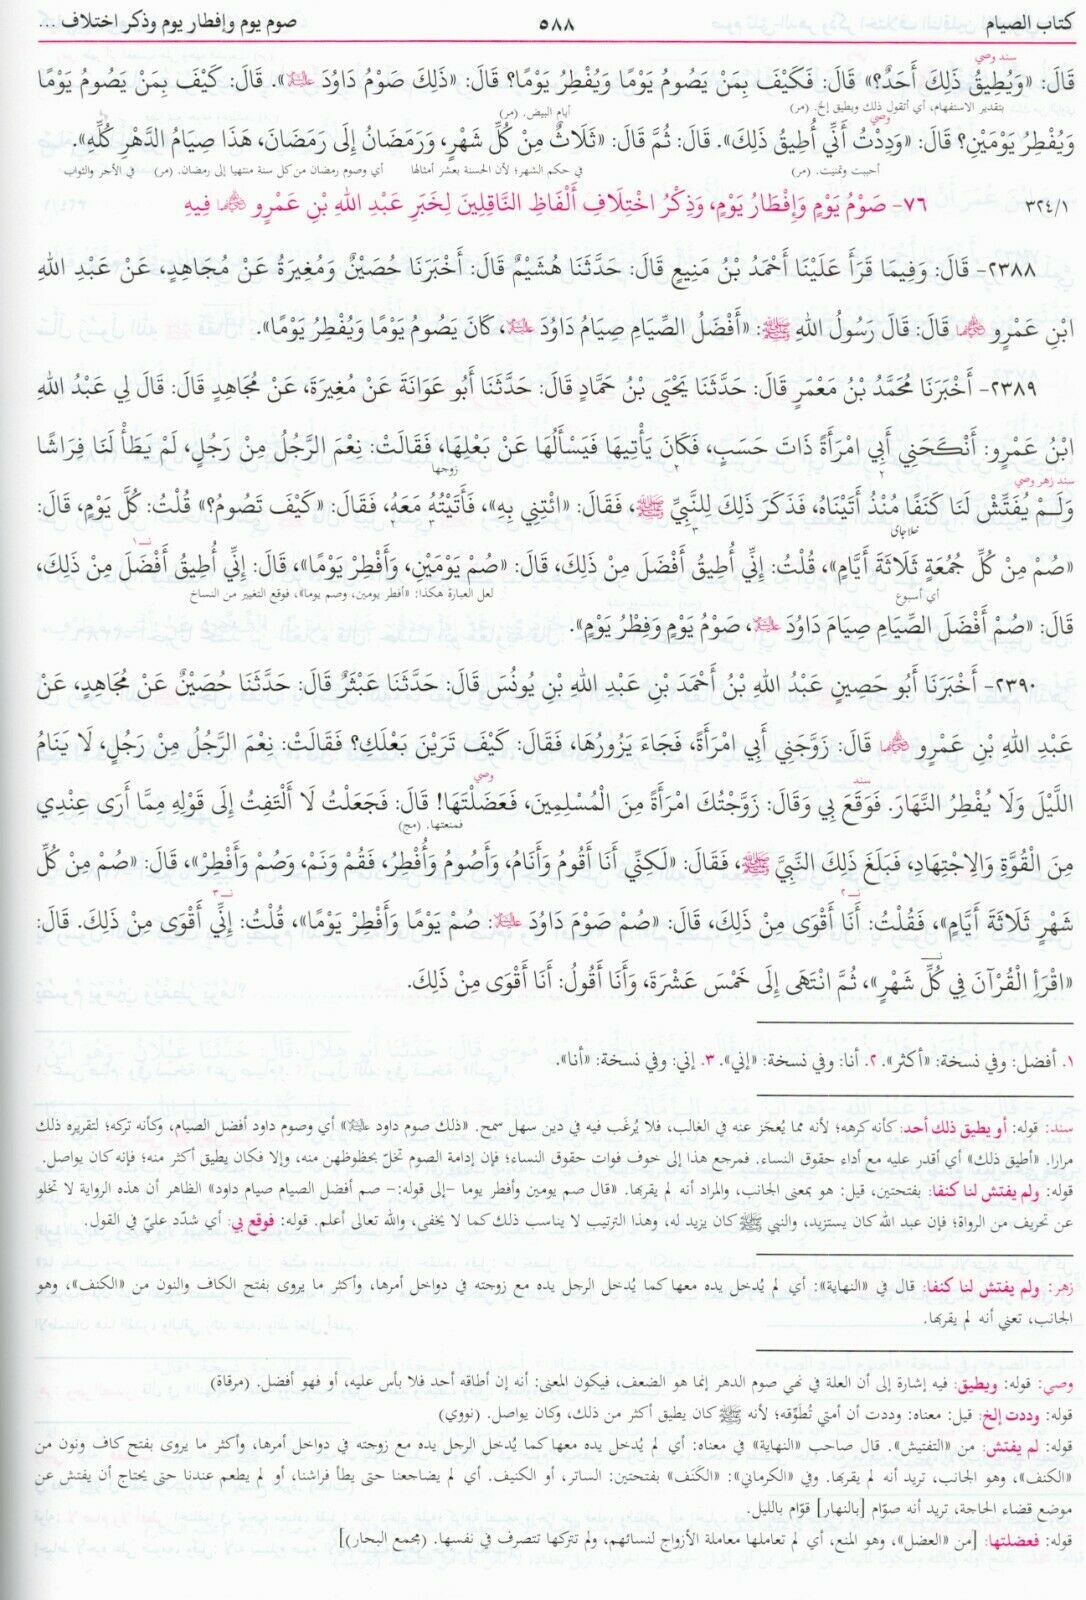 كتاب الصيام ٥٨٨ صوم يوم وإفطار يوم وذكر اختلاف ...
سند وصي
قَالَ: «وَيُطِيقُ ذَلِكَ أَحَدٌ؟» قَالَ: فَكَيْفَ بِمَنْ يَصُومُ يَوْمًا وَيُفْطِرُ يَوْمًا؟ قَالَ: «ذَلِكَ صَوْمُ دَاوُدَ عليه السلام». قَالَ: كَيْفَ بِمَنْ يَصُومُ يَوْمًا
بتقدير الاستفهام، أي أتقول ذلك ويطيق إلخ. (مر) أيام البيض. (مر)
وصي
وَيُفْطِرُ يَوْمَيْنِ؟ قَالَ: «وَدِدْتُ أَنِّي أُطِيقُ ذَلِكَ». قَالَ: ثُمَّ قَالَ: «ثَلَاثٌ مِنْ كُلِّ شَهْرٍ، وَرَمَضَانُ إِلَى رَمَضَانَ، هَذَا صِيَامُ الدَّهْرِ كُلِّهِ».
أحببت وتمنيت. (مر) في حكم الشهر؛ لأن الحسنة بعشر أمثالها أي وصوم رمضان من كل سنة منتهيا إلى رمضان. (مر) في الأجر والثواب
٣٢٤/١ ٧٦- صَوْمُ يَوْمٍ وَإِفْطَارُ يَوْمٍ، وَذِكْرُ اخْتِلَافِ أَلْفَاظِ النَّاقِلِينَ لِخَبَرِ عَبْدِ اللهِ بْنِ عَمْرٍو رضي الله عنهما فِيهِ
٢٣٨٨- قَالَ: وَفِيمَا قَرَأَ عَلَيْنَا أَحْمَدُ بْنُ مَنِيعٍ قَالَ: حَدَّثَنَا هُشَيْمٌ قَالَ: أَخْبَرَنَا حُصَيْنٌ وَمُغِيرَةُ عَنْ مُجَاهِدٍ، عَنْ عَبْدِ اللهِ
ابْنِ عَمْرٍو رضي الله عنهما قَالَ: قَالَ رَسُولُ اللهِ ﷺ: «أَفْضَلُ الصِّيَامِ صِيَامُ دَاوُدَ عليه السلام، كَانَ يَصُومُ يَوْمًا وَيُفْطِرُ يَوْمًا».
٢٣٨٩- أَخْبَرَنَا مُحَمَّدُ بْنُ مَعْمَرٍ قَالَ: حَدَّثَنَا يَحْيَى بْنُ حَمَّادٍ قَالَ: حَدَّثَنَا أَبُو عَوَانَةَ عَنْ مُغِيرَةَ، عَنْ مُجَاهِدٍ قَالَ: قَالَ لِي عَبْدُ اللهِ
ابْنُ عَمْرٍو: أَنْكَحَنِي أَبِي امْرَأَةً ذَاتَ حَسَبٍ، فَكَانَ يَأْتِيهَا فَيَسْأَلُهَا عَنْ بَعْلِهَا، فَقَالَتْ: نِعْمَ الرَّجُلُ مِنْ رَجُلٍ، لَمْ يَطَأْ لَنَا فِرَاشًا
زوجها
سند زهر وصي
وَلَمْ يُفَتِّشْ لَنَا كَنَفًا مُنْذُ أَتَيْنَاهُ، فَذَكَرَ ذَلِكَ لِلنَّبِيِّ ﷺ، فَقَالَ: «ائْتِنِي بِهِ»، فَأَتَيْتُهُ مَعَهُ، فَقَالَ: «كَيْفَ تَصُومُ؟» قُلْتُ: كُلَّ يَوْمٍ، قَالَ:
نـ١
«صُمْ مِنْ كُلِّ جُمُعَةٍ ثَلَاثَةَ أَيَّامٍ»، قُلْتُ: إِنِّي أُطِيقُ أَفْضَلَ مِنْ ذَلِكَ، قَالَ: «صُمْ يَوْمَيْنِ، وَأَفْطِرْ يَوْمًا»، قَالَ: إِنِّي أُطِيقُ أَفْضَلَ مِنْ ذَلِكَ،
أي أسبوع لعل العبارة هكذا: «أفطر يومين، وصم يوما»، فوقع التغيير من النساخ
قَالَ: «صُمْ أَفْضَلَ الصِّيَامِ صِيَامَ دَاوُدَ عليه السلام، صَوْمُ يَوْمٍ وَفِطْرُ يَوْمٍ».
٢٣٩٠- أَخْبَرَنَا أَبُو حَصِينٍ عَبْدُ اللهِ بْنُ أَحْمَدَ بْنِ عَبْدِ اللهِ بْنِ يُونُسَ قَالَ: حَدَّثَنَا عَبْثَرٌ قَالَ: حَدَّثَنَا حُصَيْنٌ عَنْ مُجَاهِدٍ، عَنْ
عَبْدِ اللهِ بْنِ عَمْرٍو رضي الله عنهما قَالَ: زَوَّجَنِي أَبِي امْرَأَةً، فَجَاءَ يَزُورُهَا، فَقَالَ: كَيْفَ تَرَيْنَ بَعْلَكِ؟ فَقَالَتْ: نِعْمَ الرَّجُلُ مِنْ رَجُلٍ، لَا يَنَامُ
سند وصي
اللَّيْلَ وَلَا يُفْطِرُ النَّهَارَ. فَوَقَعَ بِي وَقَالَ: زَوَّجْتُكَ امْرَأَةً مِنَ الْمُسْلِمِينَ، فَعَضَلْتَهَا! قَالَ: فَجَعَلْتُ لَا أَلْتَفِتُ إِلَى قَوْلِهِ مِمَّا أَرَى عِنْدِي
فمنعتها. (مج)
مِنَ الْقُوَّةِ وَالِاجْتِهَادِ، فَبَلَغَ ذَلِكَ النَّبِيَّ ﷺ، فَقَالَ: «لَكِنِّي أَنَا أَقُومُ وَأَنَامُ، وَأَصُومُ وَأُفْطِرُ، فَقُمْ وَنَمْ، وَصُمْ وَأَفْطِرْ»، قَالَ: «صُمْ مِنْ كُلِّ
نـ٢ نـ٣
شَهْرٍ ثَلَاثَةَ أَيَّامٍ»، فَقُلْتُ: أَنَا أَقْوَى مِنْ ذَلِكَ، قَالَ: «صُمْ صَوْمَ دَاوُدَ عليه السلام: صُمْ يَوْمًا وَأَفْطِرْ يَوْمًا»، قُلْتُ: إِنِّي أَقْوَى مِنْ ذَلِكَ. قَالَ:
«اقْرَأِ الْقُرْآنَ فِي كُلِّ شَهْرٍ»، ثُمَّ انْتَهَى إِلَى خَمْسَ عَشْرَةَ، وَأَنَا أَقُولُ: أَنَا أَقْوَى مِنْ ذَلِكَ.
١. أفضل: وفي نسخة: «أكثر». ٢. أنا: وفي نسخة: «إني». ٣. إني: وفي نسخة: «أنا».
سند: قوله: أو يطيق ذلك أحد: كأنه كرهه؛ لأنه مما يُعجَز عنه في الغالب، فلا يُرغَب فيه في دين سهل سمح. «ذلك صوم داود عليه السلام» أي وصوم داود أفضل الصيام، وكأنه تركه؛ لتقريره ذلك
مرارا. «أطيق ذلك» أي أقدر عليه مع أداء حقوق النساء. فمرجع هذا إلى خوف فوات حقوق النساء؛ فإن إدامة الصوم تخلّ بحظوظهن منه، وإلا فكان يطيق أكثر منه؛ فإنه كان يواصل.
قوله: ولم يفتش لنا كنفا: بفتحتين، قيل: هو بمعنى الجانب، والمراد أنه لم يقربها. «قال صم يومين وأفطر يوما –إلى قوله:– صم أفضل الصيام صيام داود» الظاهر أن هذه الرواية لا تخلو
عن تحريف من الرواة؛ فإن عبد الله كان يستزيد، والنبي ﷺ كان يزيد له، وهذا الترتيب لا يناسب ذلك كما لا يخفى، والله تعالى أعلم. قوله: فوقع بي: أي شدّد عليّ في القول.
زهر: ولم يفتش لنا كنفا: قال في «النهاية»: أي لم يُدخل يده معها كما يُدخل الرجل يده مع زوجته في دواخل أمرها، وأكثر ما يروى بفتح الكاف والنون من «الكنف»، وهو
الجانب، تعني أنه لم يقربها.
وصي: قوله: ويطيق: فيه إشارة إلى أن العلة في نهي صوم الدهر إنما هو الضعف، فيكون المعنى: أنه إن أطاقه أحد فلا بأس عليه، أو فهو أفضل. (مرقاة)
قوله: وددت إلخ: قيل: معناه: وددت أن أمتي تُطَوَّقه؛ لأنه ﷺ كان يطيق أكثر من ذلك، وكان يواصل. (نووي)
قوله: لم يفتش: من «التفتيش». قال صاحب «النهاية» في معناه: أي لم يُدخل يده معها كما يُدخل الرجل يده مع زوجته في دواخل أمرها، وأكثر ما يروى بفتح كاف ونون من
«الكنف»، وهو الجانب، تريد أنه لم يقربها. وفي «الكرماني»: «الكَنَف» بفتحتين: الساتر، أو الكنيف. أي لم يضاجعنا حتى يطأ فراشنا، أو لم يطعم عندنا حتى يحتاج أن يفتش عن
موضع قضاء الحاجة، تريد أنه صوّام [بالنهار] قوّام بالليل.
قوله: فعضلتها: [من «العضل»، وهو المنع، أي لم تعاملها معاملة الأزواج لنسائهم، ولم تتركها تتصرف في نفسها. (مجمع البحار)]